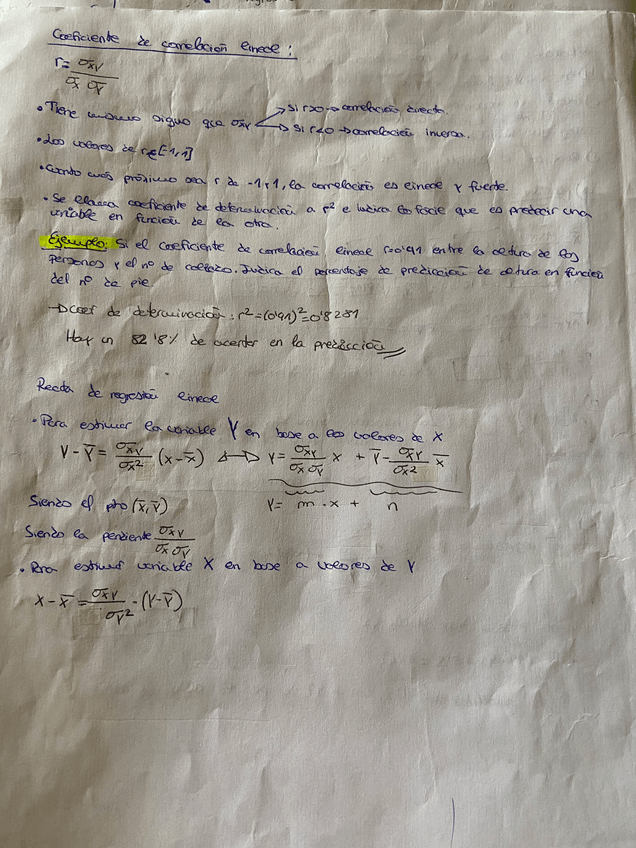 Coeficiente de correlación lineal:
r = σxy / σx σy
• Tiene mismo signo que σxy → si r>0 → correlación directa.
→ si r<0 → correlación inversa.
• Los valores de r ∈ [-1,1]
• Cuanto más próximo sea r de -1 y 1, la correlación es lineal y fuerte.
• Se llama coeficiente de determinación a r² e indica lo fácil que es predecir una
variable en función de la otra.
Ejemplo: Si el coeficiente de correlación lineal r=0'91 entre la altura de las
personas y el nº de calzado. Indica el porcentaje de predicción de altura en función
del nº de pie
→ Coef de determinación: r² = (0'91)² = 0'8281
Hay un 82'8% de acertar en la predicción
Recta de regresión lineal
• Para estimar la variable Y en base a los valores de X
Y - Ȳ = σxy / σx² (x - x̄) ↔ Y = σxy / σx σy x + Ȳ - σxy / σx² x̄
Siendo el pto (x̄, Ȳ) Y = m · x + n
Siendo la pendiente σxy / σx σy
• Para estimar variable X en base a valores de Y
X - x̄ = σxy / σy² · (Y - Ȳ)